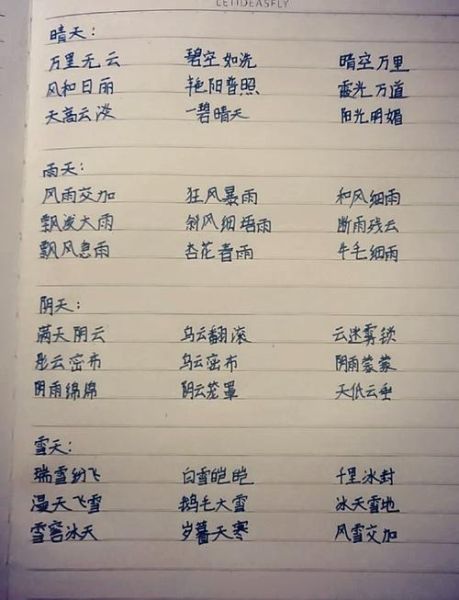 LETIDEASFLY
晴天：
万里无云 碧空如洗 晴空万里
风和日丽 艳阳普照 霞光万道
天高云淡 一碧晴天 阳光明媚
雨天：
风雨交加 狂风暴雨 和风细雨
飘泼大雨 斜风细雨 断雨残云
飘风急雨 杏花春雨 牛毛细雨
阴天：
满天阴云 乌云翻滚 云迷雾锁
彤云密布 乌云密布 阴雨蒙蒙
阴雨绵绵 阴云笼罩 天低云垂
雪天：
瑞雪纷飞 白雪皑皑 千里冰封
漫天飞雪 鹅毛大雪 冰天雪地
雪窖冰天 岁暮天寒 风雪交加